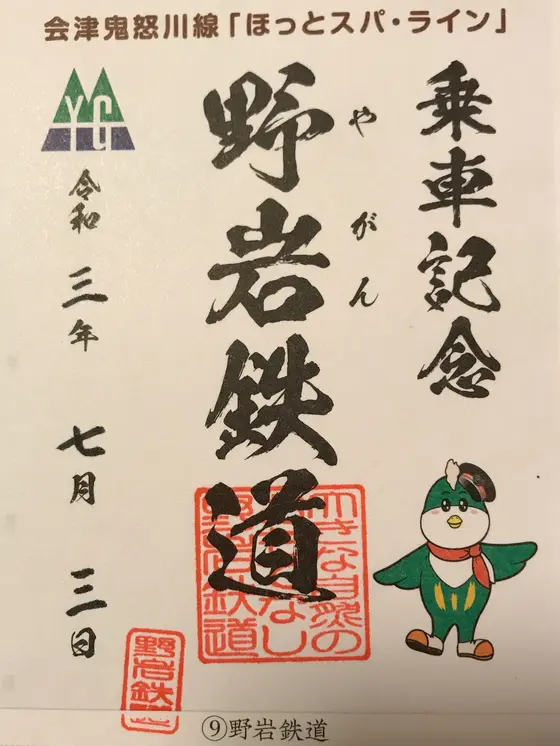 会津鬼怒川線「ほっとスパ・ライン」
乗車記念
野岩鉄道
やがん
YG
令和 三年 七月 三日
大きな自然の
野岩鉄道
野岩鉄道
⑨野岩鉄道